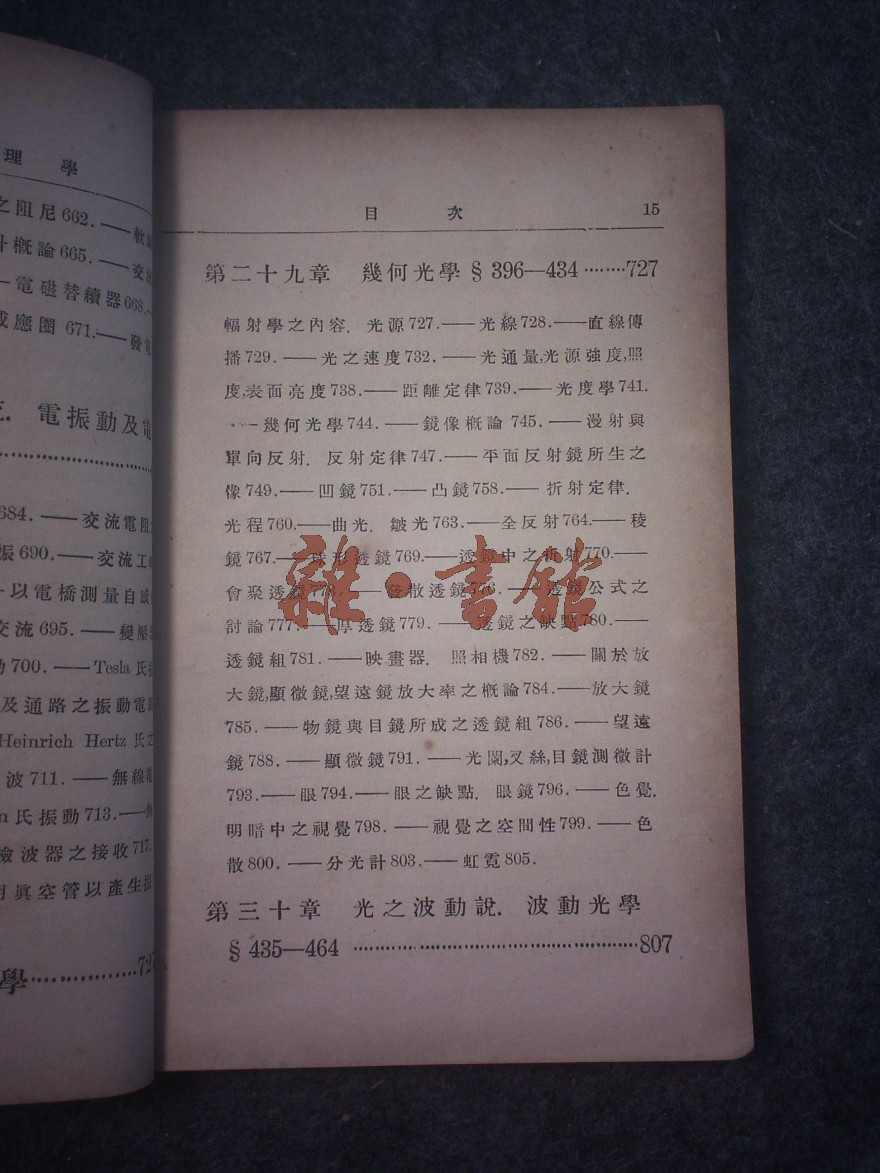 理學
之阻尼662.——軟
計概論665.——交
電磁替續器668.
應圈671.——發電
電振動及電
684.——交流電阻
振690.——交流工
以電橋測量自感
交流695.——變壓
動700.——Tesla氏
及通路之振動電路
Heinrich Hertz氏之
波711.——無線電
n氏振動713.——
檢波器之接收717.
用眞空管以產生振
學············727
目次 15
第二十九章 幾何光學 § 396—434········727
輻射學之內容. 光源727.——光線728.——直線傳
播729.——光之速度732.——光通量,光源強度,照
度,表面亮度738.——距離定律739.——光度學741.
——幾何光學744.——鏡像概論745.——漫射與
單向反射. 反射定律747.——平面反射鏡所生之
像749.——凹鏡751.——凸鏡758.——折射定律.
光程760.——曲光. 皺光763.——全反射764.——稜
鏡767.——球形透鏡769.——透鏡中之折射770.——
會聚透鏡773.——發散透鏡776.——透鏡公式之
討論777.——厚透鏡779.——透鏡之缺點780.——
透鏡組781.——映畫器. 照相機782.——關於放
大鏡,顯微鏡,望遠鏡放大率之概論784.——放大鏡
785.——物鏡與目鏡所成之透鏡組786.——望遠
鏡788.——顯微鏡791.——光闌,叉絲,目鏡測微計
793.——眼794.——眼之缺點. 眼鏡796.——色覺.
明暗中之視覺798.——視覺之空間性799.——色
散800.——分光計803.——虹霓805.
第三十章 光之波動說. 波動光學
§ 435—464 ········································807
雜·書館